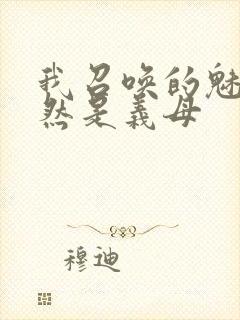 我召唤的魅
然是義母
穆迪